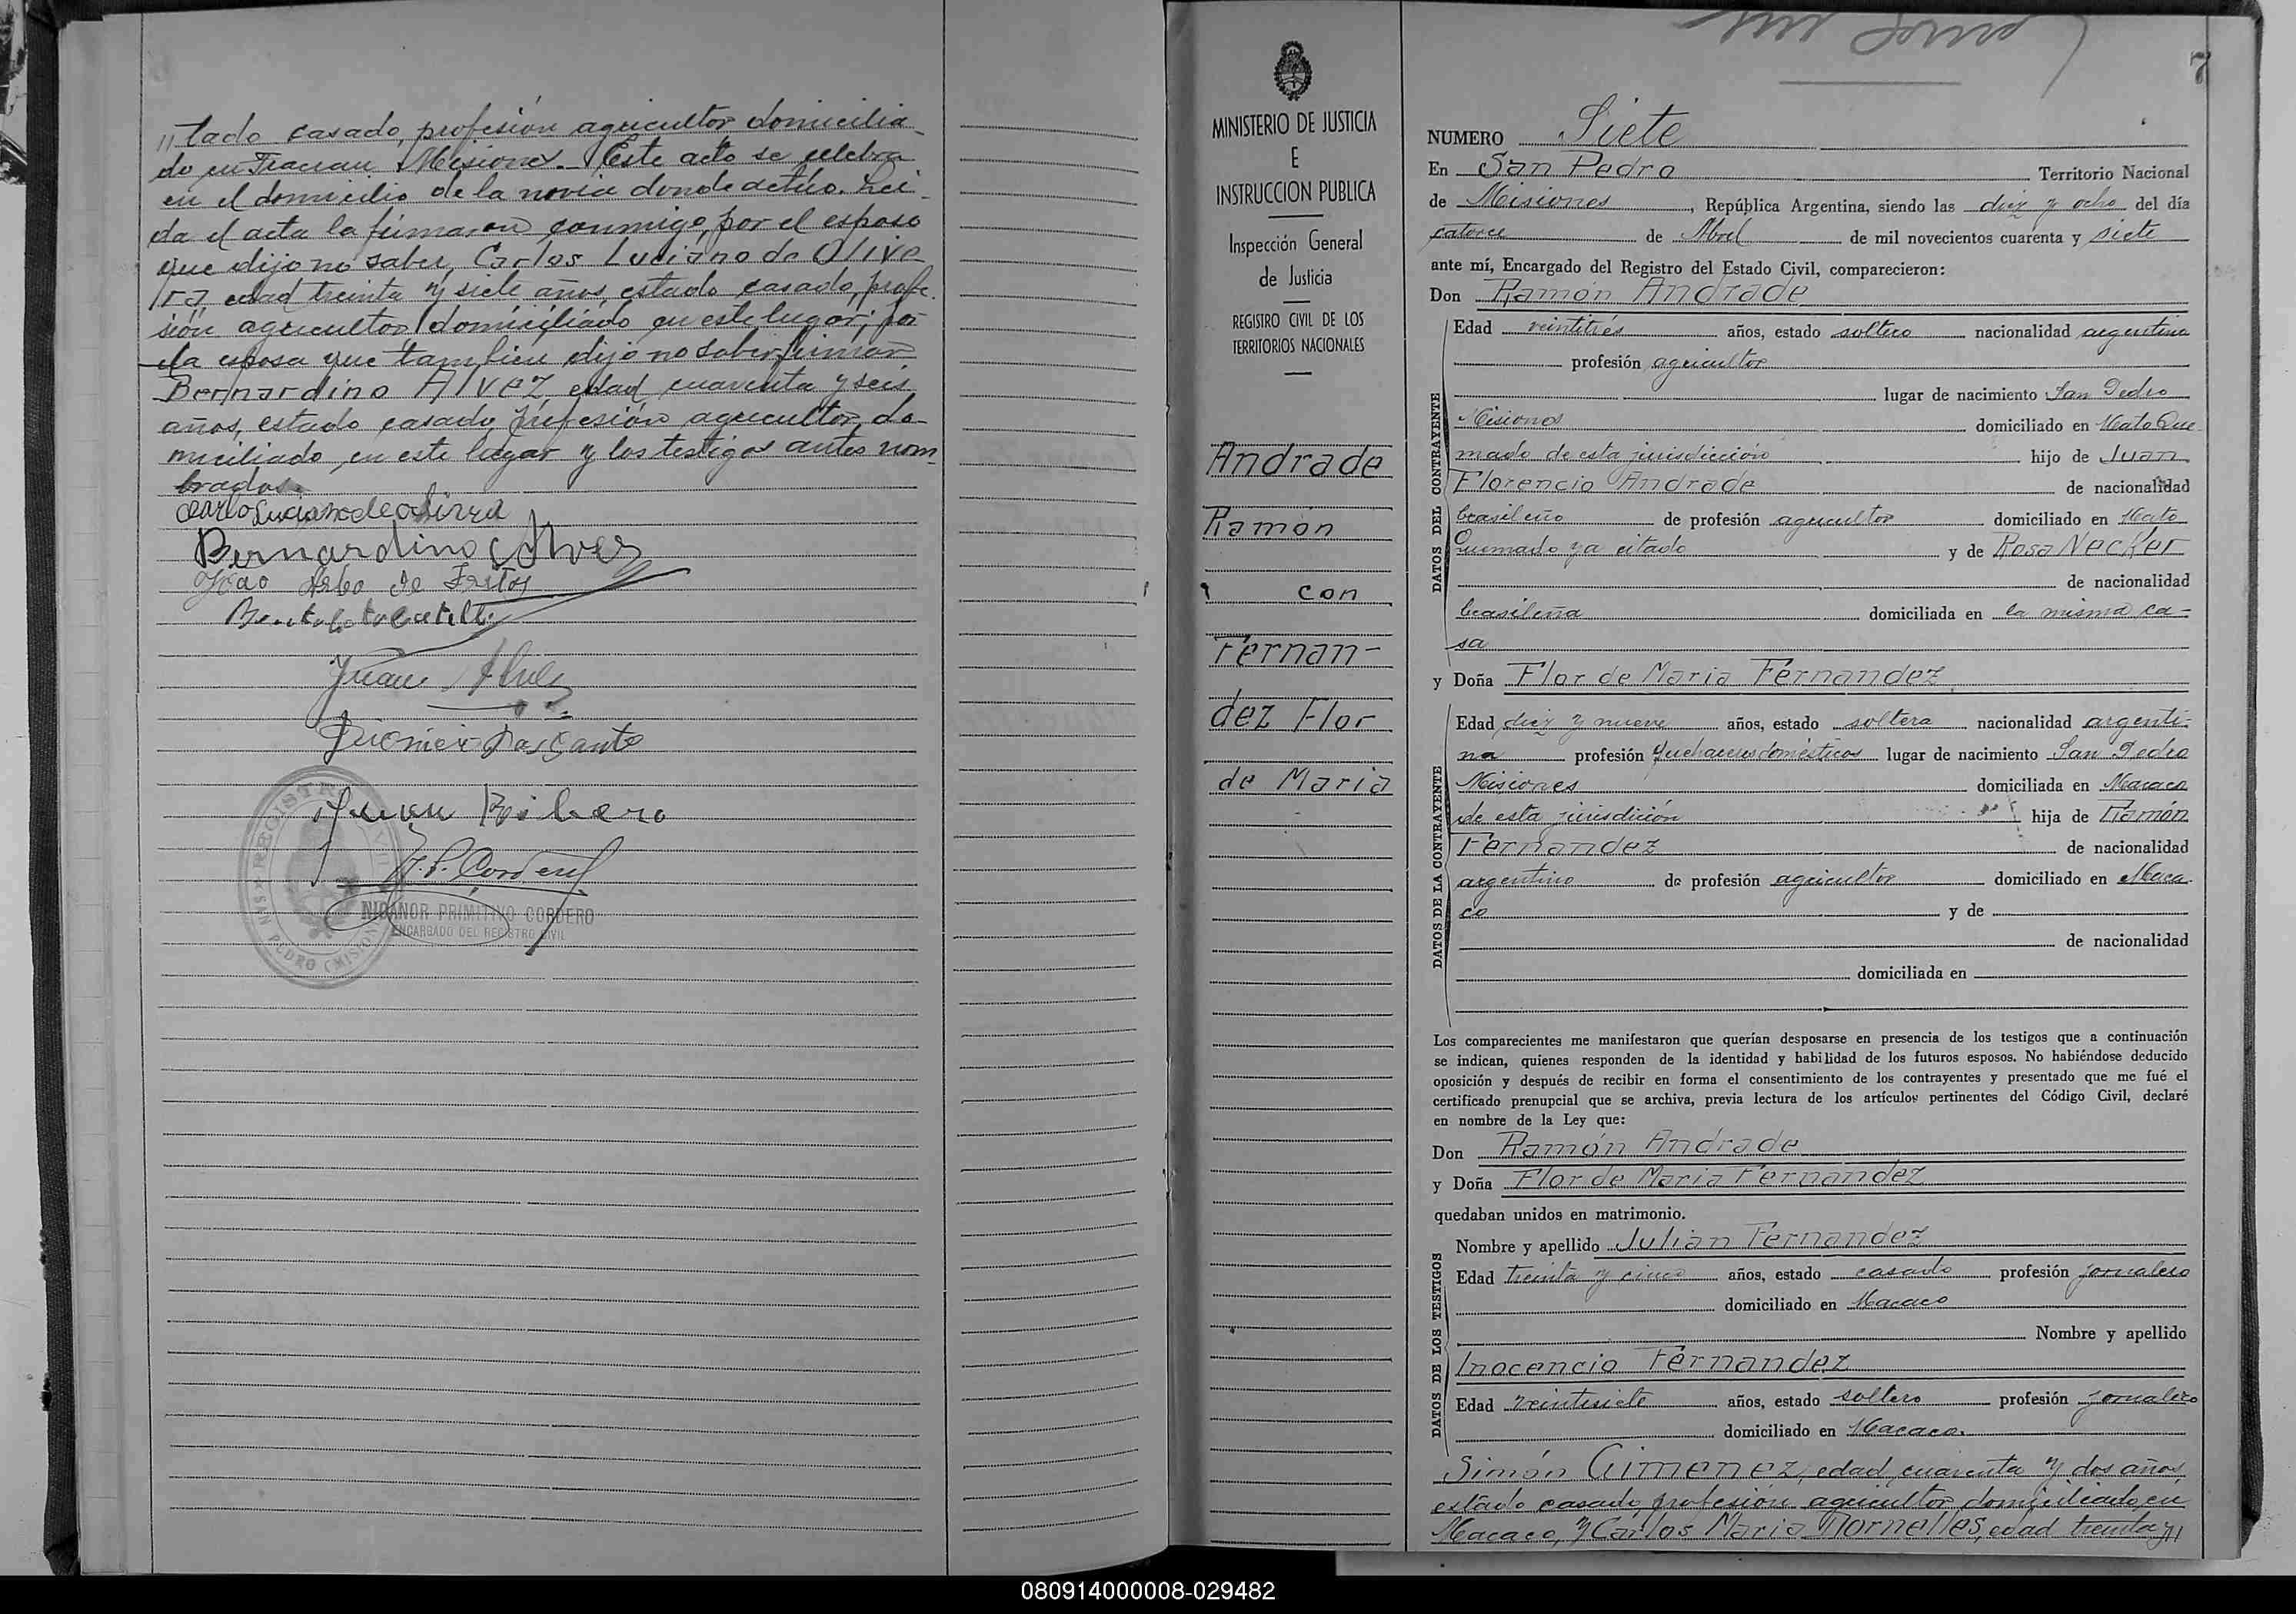 " tado casado, profesión agricultor domicilia-
do en Misiones.- Este acto se celebra
en el domicilio de la novia donde actúo. Leí-
da el acta la firmaron conmigo, por el esposo
que dijo no saber, Carlos Luciano de Olive
ra edad treinta y siete años, estado casado, profe-
sión agricultor domiciliado en este lugar; por
la esposa que tambien dijo no saber firmar
Bernardino Alvez, edad cuarenta y seis
años, estado casado, profesión agricultor, do-
miciliado en este lugar y los testigos antes nom-
brados.
Carlo Luciano de olivera
Bernardino Alvez
Juan
Juan Ribero
N.P. Cordero
REGISTRO CIVIL
SAN PEDRO (MISIONES)
NICANOR PRIMITIVO CORDERO
ENCARGADO DEL REGISTRO CIVIL
MINISTERIO DE JUSTICIA
E
INSTRUCCION PUBLICA
Inspección General
de Justicia
REGISTRO CIVIL DE LOS
TERRITORIOS NACIONALES
Andrade
Ramón
con
Fernan-
dez Flor
de Maria
7
NUMERO Siete
En San Pedro Territorio Nacional
de Misiones, República Argentina, siendo las diez y ocho del día
catorce de Abril de mil novecientos cuarenta y siete
ante mí, Encargado del Registro del Estado Civil, comparecieron:
Don Ramón Andrade
DATOS DEL CONTRAYENTE
Edad veintitrés años, estado soltero nacionalidad argentina
profesión agricultor
lugar de nacimiento San Pedro
Misiones domiciliado en Mato Que-
mado de esta jurisdicción hijo de Juan
Florencio Andrade de nacionalidad
brasileño de profesión agricultor domiciliado en Mato
Quemado ya citado y de Rosa Necker
de nacionalidad
brasileña domiciliada en la misma ca-
sa
y Doña Flor de Maria Fernandez
DATOS DE LA CONTRAYENTE
Edad diez y nueve años, estado soltera nacionalidad argenti-
na profesión quehaceres domésticos lugar de nacimiento San Pedro
Misiones domiciliada en Macaco
de esta jurisdición hija de Ramón
Fernandez de nacionalidad
argentino de profesión agricultor domiciliado en Maca-
co y de
de nacionalidad
domiciliada en
Los comparecientes me manifestaron que querían desposarse en presencia de los testigos que a continuación
se indican, quienes responden de la identidad y habilidad de los futuros esposos. No habiéndose deducido
oposición y después de recibir en forma el consentimiento de los contrayentes y presentado que me fué el
certificado prenupcial que se archiva, previa lectura de los artículos pertinentes del Código Civil, declaré
en nombre de la Ley que:
Don Ramón Andrade
y Doña Flor de Maria Fernandez
quedaban unidos en matrimonio.
DATOS DE LOS TESTIGOS
Nombre y apellido Julian Fernandez
Edad treinta y cinco años, estado casado profesión jornalero
domiciliado en Macaco
Nombre y apellido
Inocencio Fernandez
Edad veintisiete años, estado soltero profesión jornalero
domiciliado en Macaco.
Simón Gimenez, edad cuarenta y dos años,
estado casado, profesión agricultor domiciliado en
Macaco, y Carlos Maria Dornelles, edad treinta y "
080914000008-029482